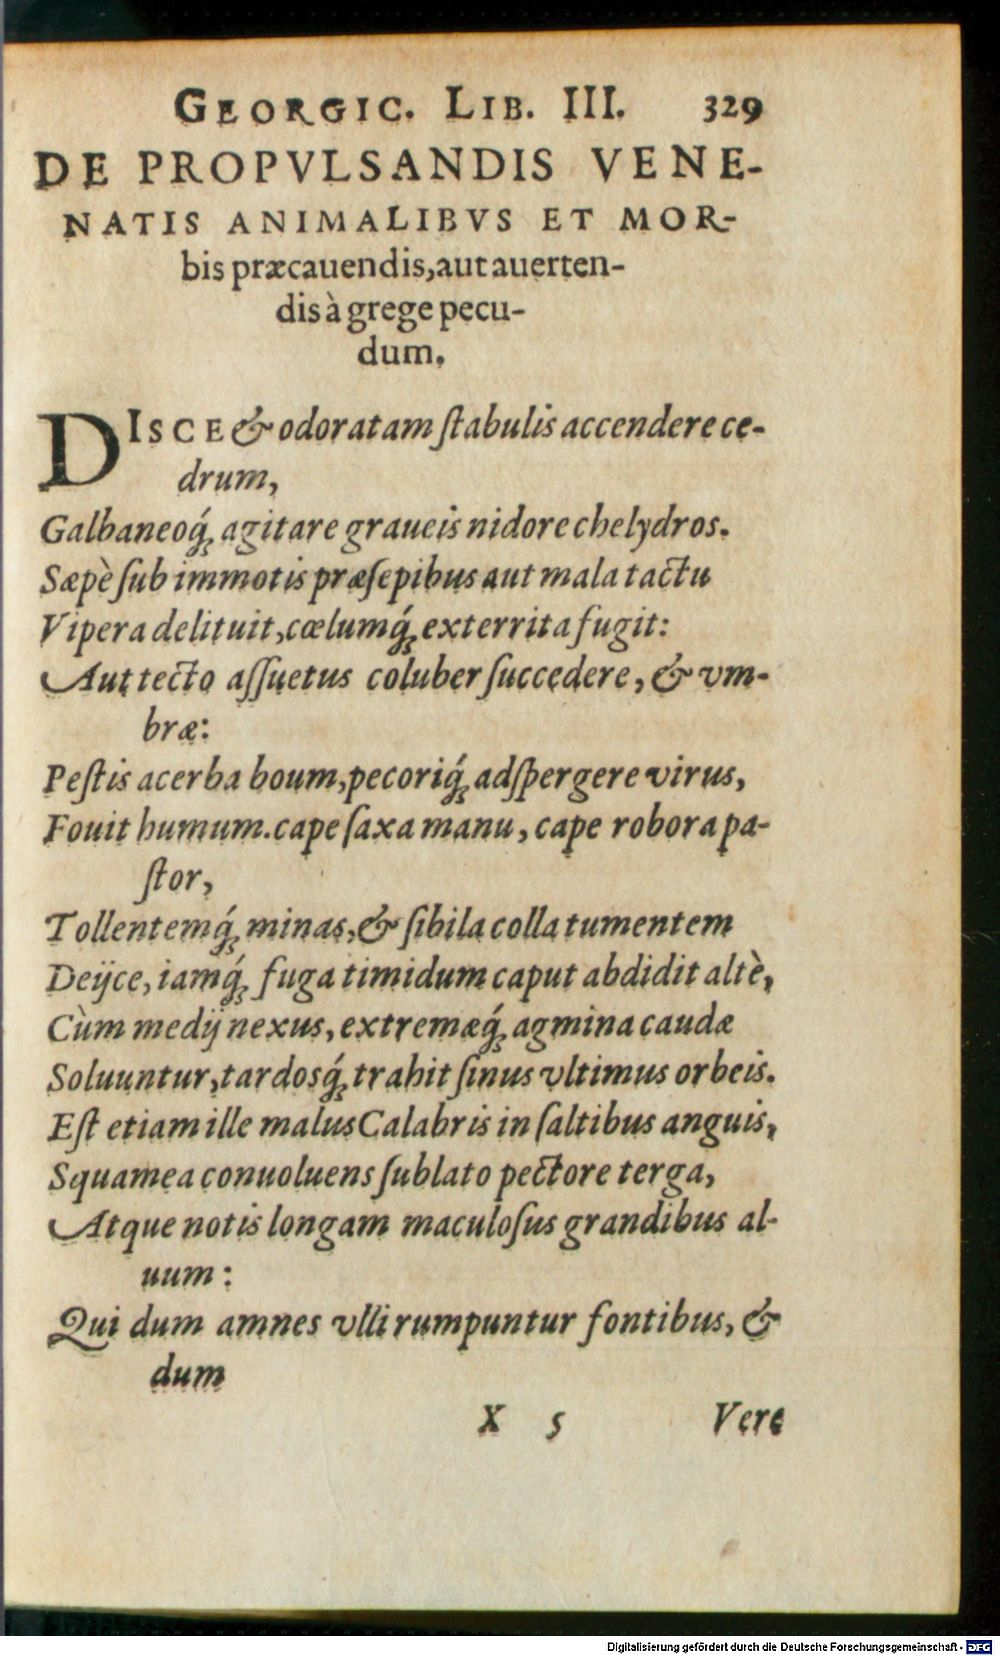 GEORGIC. LIB. III. 329
DE PROPVLSANDIS VENE-
NATIS ANIMALIBVS ET MOR-
bis præcauendis, aut auerten-
dis à grege pecu-
dum.
DISCE & odoratam ſtabulis accendere ce-
drum,
Galbaneoq́; agitare graueis nidore chelydros.
Sæpè ſub immotis præſepibus aut mala tactu
Vipera delituit, cœlumq́; exterrita fugit:
Aut tecto aſſuetus coluber ſuccedere, & vm-
bræ:
Peſtis acerba boum, pecoriq́; adſpergere virus,
Fouit humum. cape ſaxa manu, cape robora pa-
ſtor,
Tollentemq́; minas, & ſibila colla tumentem
Deijce, iamq́; fuga timidum caput abdidit altè,
Cùm medij nexus, extremæq́; agmina caudæ
Soluuntur, tardosq́; trahit ſinus vltimus orbeis.
Eſt etiam ille malus Calabris in ſaltibus anguis,
Squamea conuoluens ſublato pectore terga,
Atque notis longam maculoſus grandibus al-
uum:
Qui dum amnes vlli rumpuntur fontibus, &
dum
X 5 Vere
Digitalisierung gefördert durch die Deutsche Forschungsgemeinschaft - DFG